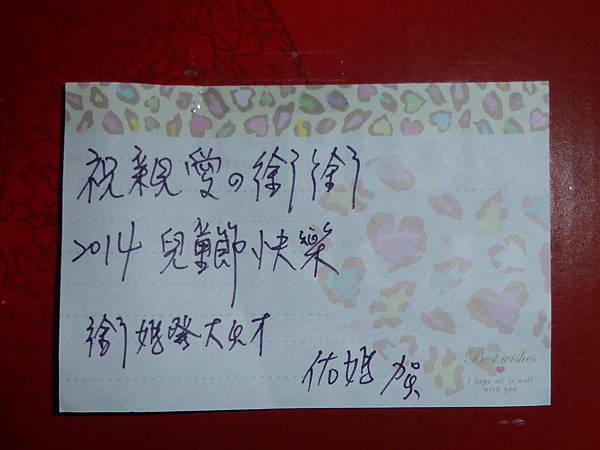 祝親愛の
2014 兒童節快樂
媽發大財
佑媽 賀
Best wishes
I hope all is well
with you